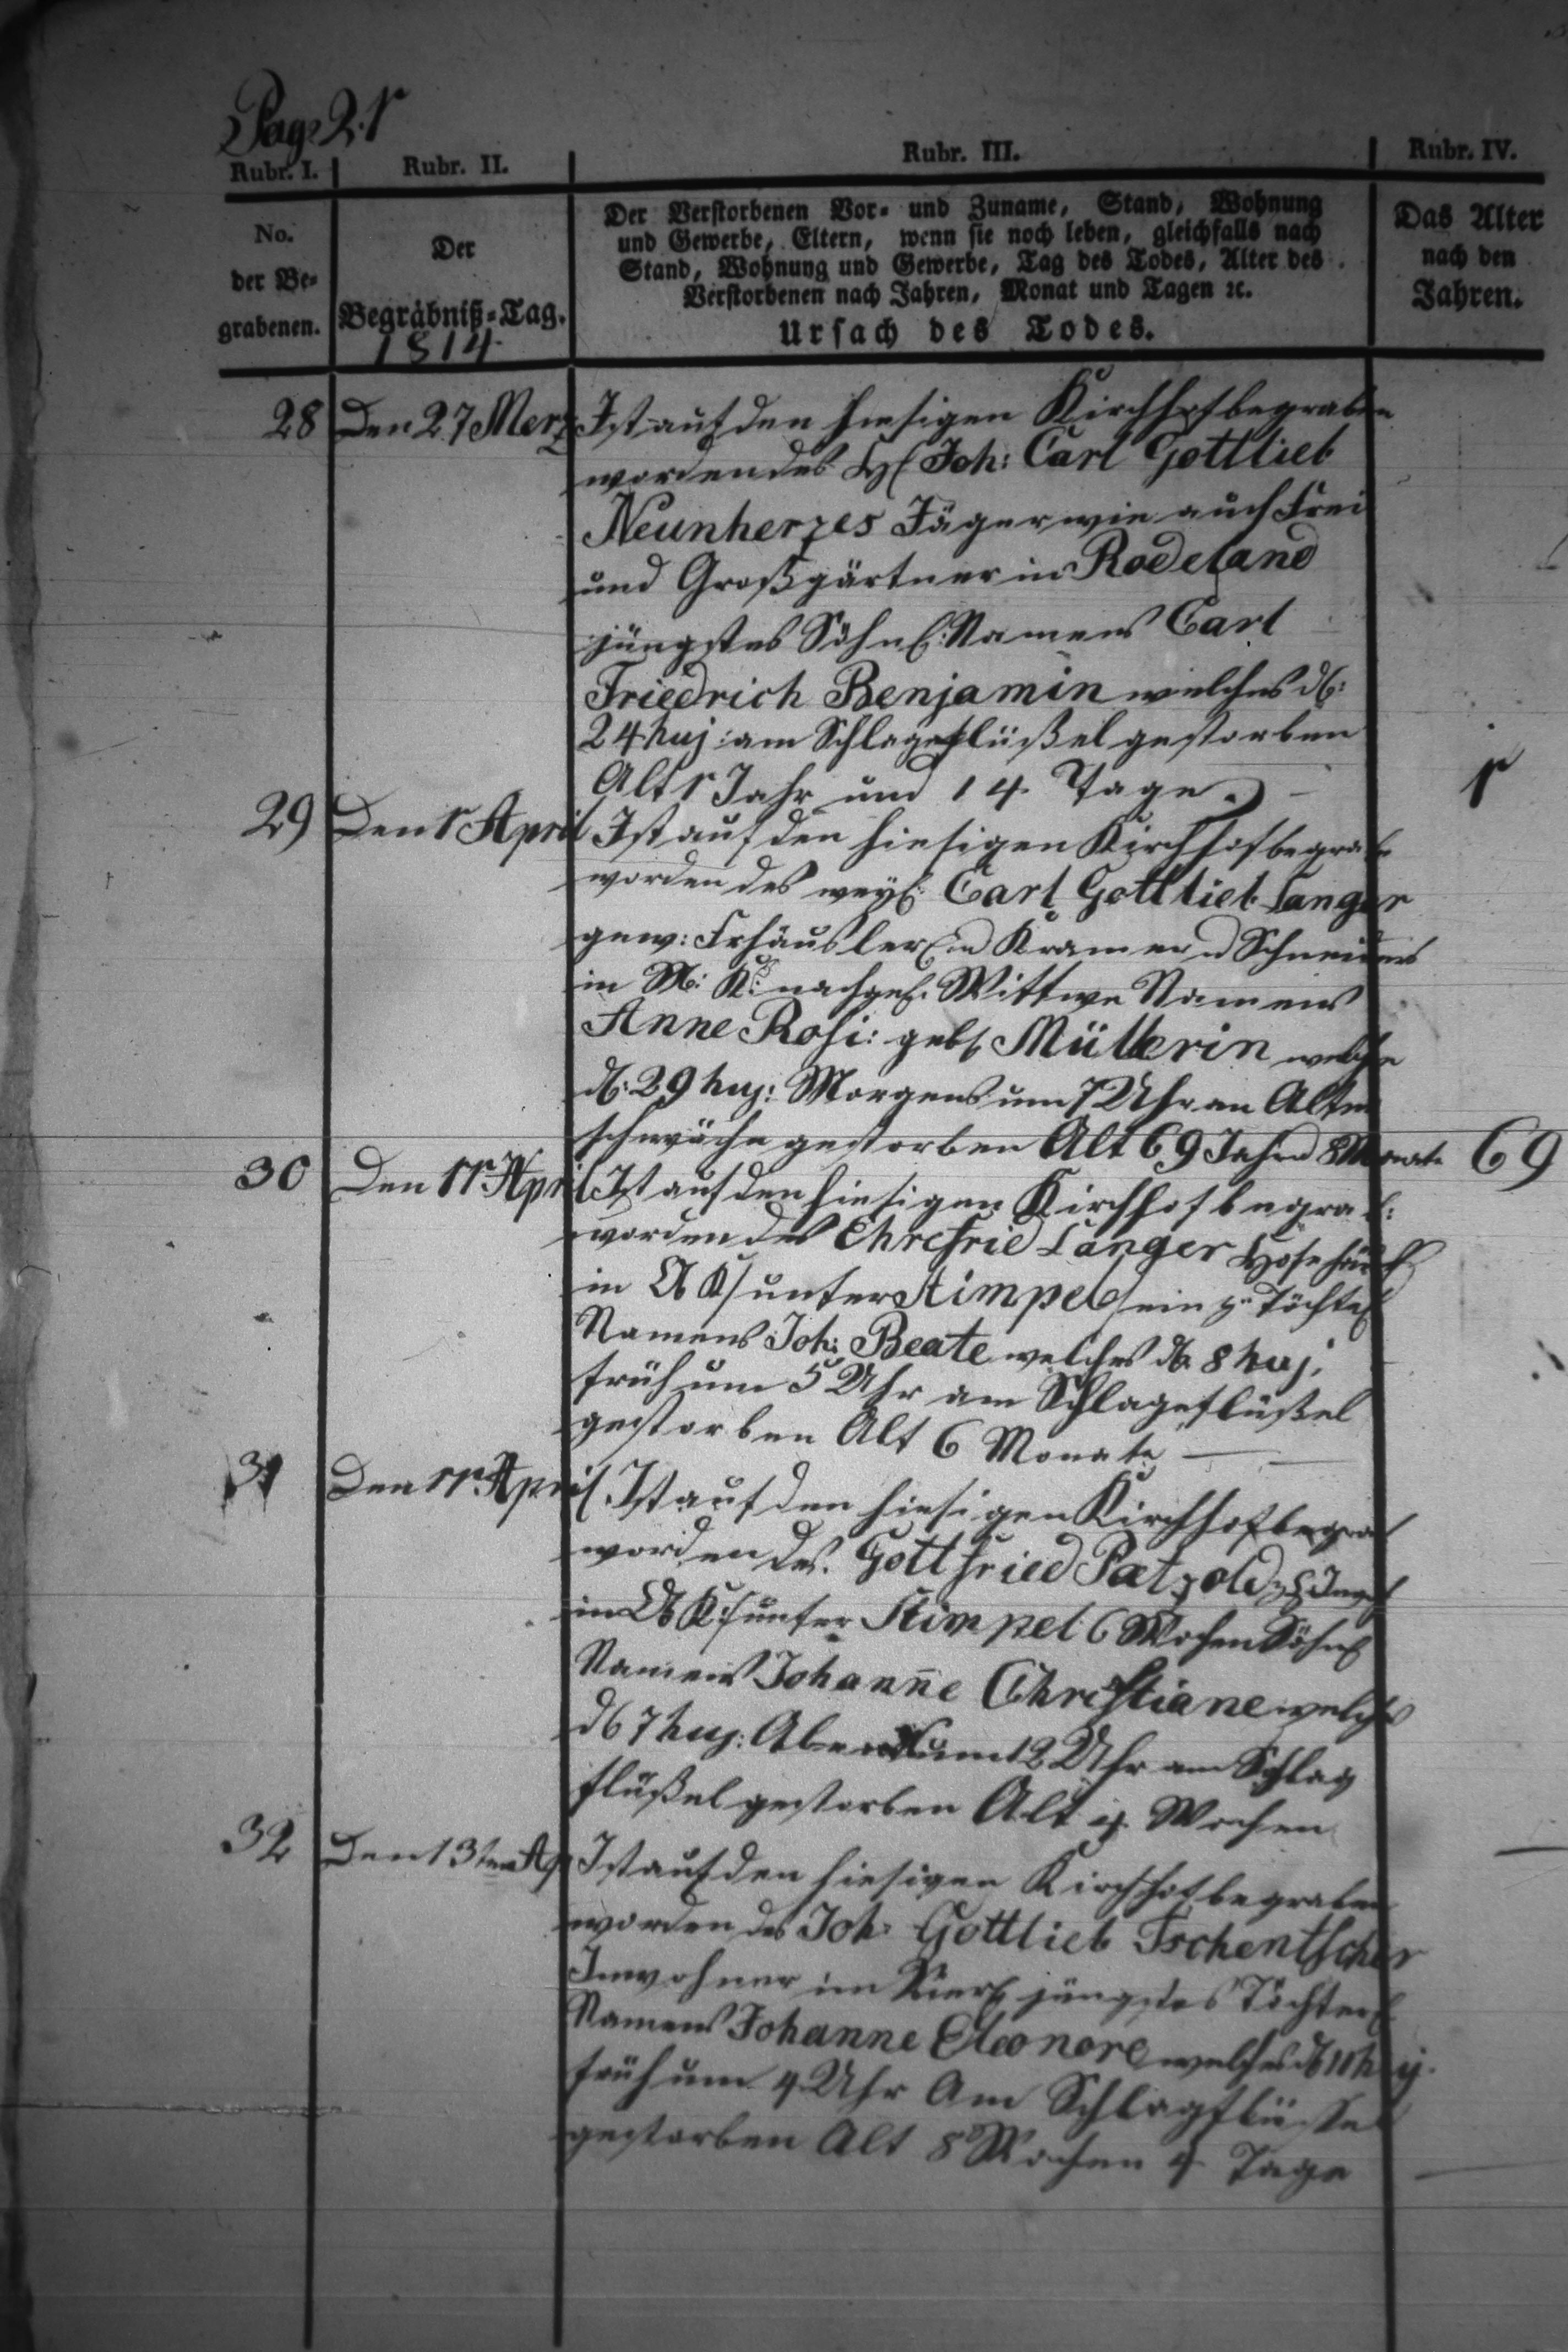 Pag: 21
Rubr. I. Rubr. II. Rubr. III. Rubr. IV.
No.
der Be-
grabenen.
Der
Begräbniß-Tag.
1814
Der Verstorbenen Vor- und Zuname, Stand, Wohnung
und Gewerbe, Eltern, wenn sie noch leben, gleichfalls nach
Stand, Wohnung und Gewerbe, Tag des Todes, Alter des
Verstorbenen nach Jahren, Monat und Tagen ꝛc.
Ursach des Todes.
Das Alter
nach den
Jahren.
28 Den 27 Merz Ist auf den hiesigen Kirchhof begraben
worden des H Joh: Carl Gottlieb
Neunherzes Jäger wie auch Frei
und Großgärtner in Rodeland
jüngstes Söhnl: Namens Carl
Friedrich Benjamin welches d:
24 huj: am Schlageflüßel gestorben
Alt 1 Jahr und 14 Tage. 1
29 Den 1 April Ist auf den hiesigen Kirchhof begrab
worden des weyl: Carl Gottlieb Langer
gew: Frhäusler Kramer u Schneiders
in M: K: nachgel. Wittwe Namens
Anne Rosi: geb Müllerin welche
d: 29 huj: Morgens um 7 Uhr an Alter
schwäche gestorben Alt 69 Jahr 8 Monate 69
30 Den 11 April Ist auf den hiesigen Kirchhof begrab:
worden des Ehrefried Langer Hofehäusl
in K unter Stimpel ein Töchterl
Namens Joh: Beate welches d 8 huj:
früh um 5 Uhr am Schlageflüßel
gestorben Alt 6 Monate —
31 Den 11 April Ist auf den hiesigen Kirchhof begrab
worden des Gottfried Pætzold
in K: unter Stimpel 6 Wochen Söhnl
Namens Johanne Christiane welches
d 7 huj: Abends um 12 Uhr am Schlag
flüßel gestorben Alt 4 Wochen
32 Den 13ten Ap Ist auf den hiesigen Kirchhof begraben
worden des Joh: Gottlieb Tschentscher
Inwohner im jüngstes Töchterl
Namens Johanne Eleonore welches d 11 huj.
früh um 4 Uhr Am Schlagflüssel
gestorben Alt 8 Wochen 4 Tage —